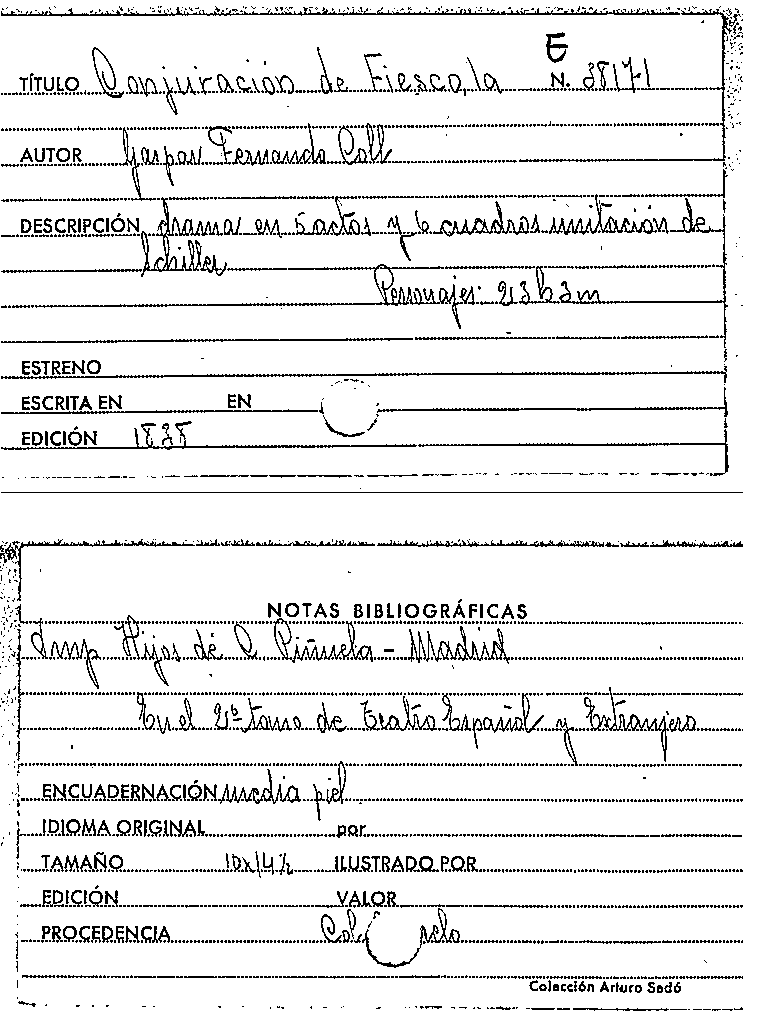 E
TÍTULO Conjuración de Fiesco, la N. 38171
AUTOR Gaspar Fernando Coll
DESCRIPCIÓN drama en 5 actos y 6 cuadros imitación de
Schiller
Personajes: 23 h 3 m
ESTRENO
ESCRITA EN EN
EDICIÓN 1838
NOTAS BIBLIOGRÁFICAS
Imp Hijos de C Piñuela - Madrid
En el 2º tomo de Teatro Español y Extranjero
ENCUADERNACIÓN media piel
IDIOMA ORIGINAL por
TAMAÑO 10x14½ ILUSTRADO POR
EDICIÓN VALOR
PROCEDENCIA Col
Colección Arturo Sedó